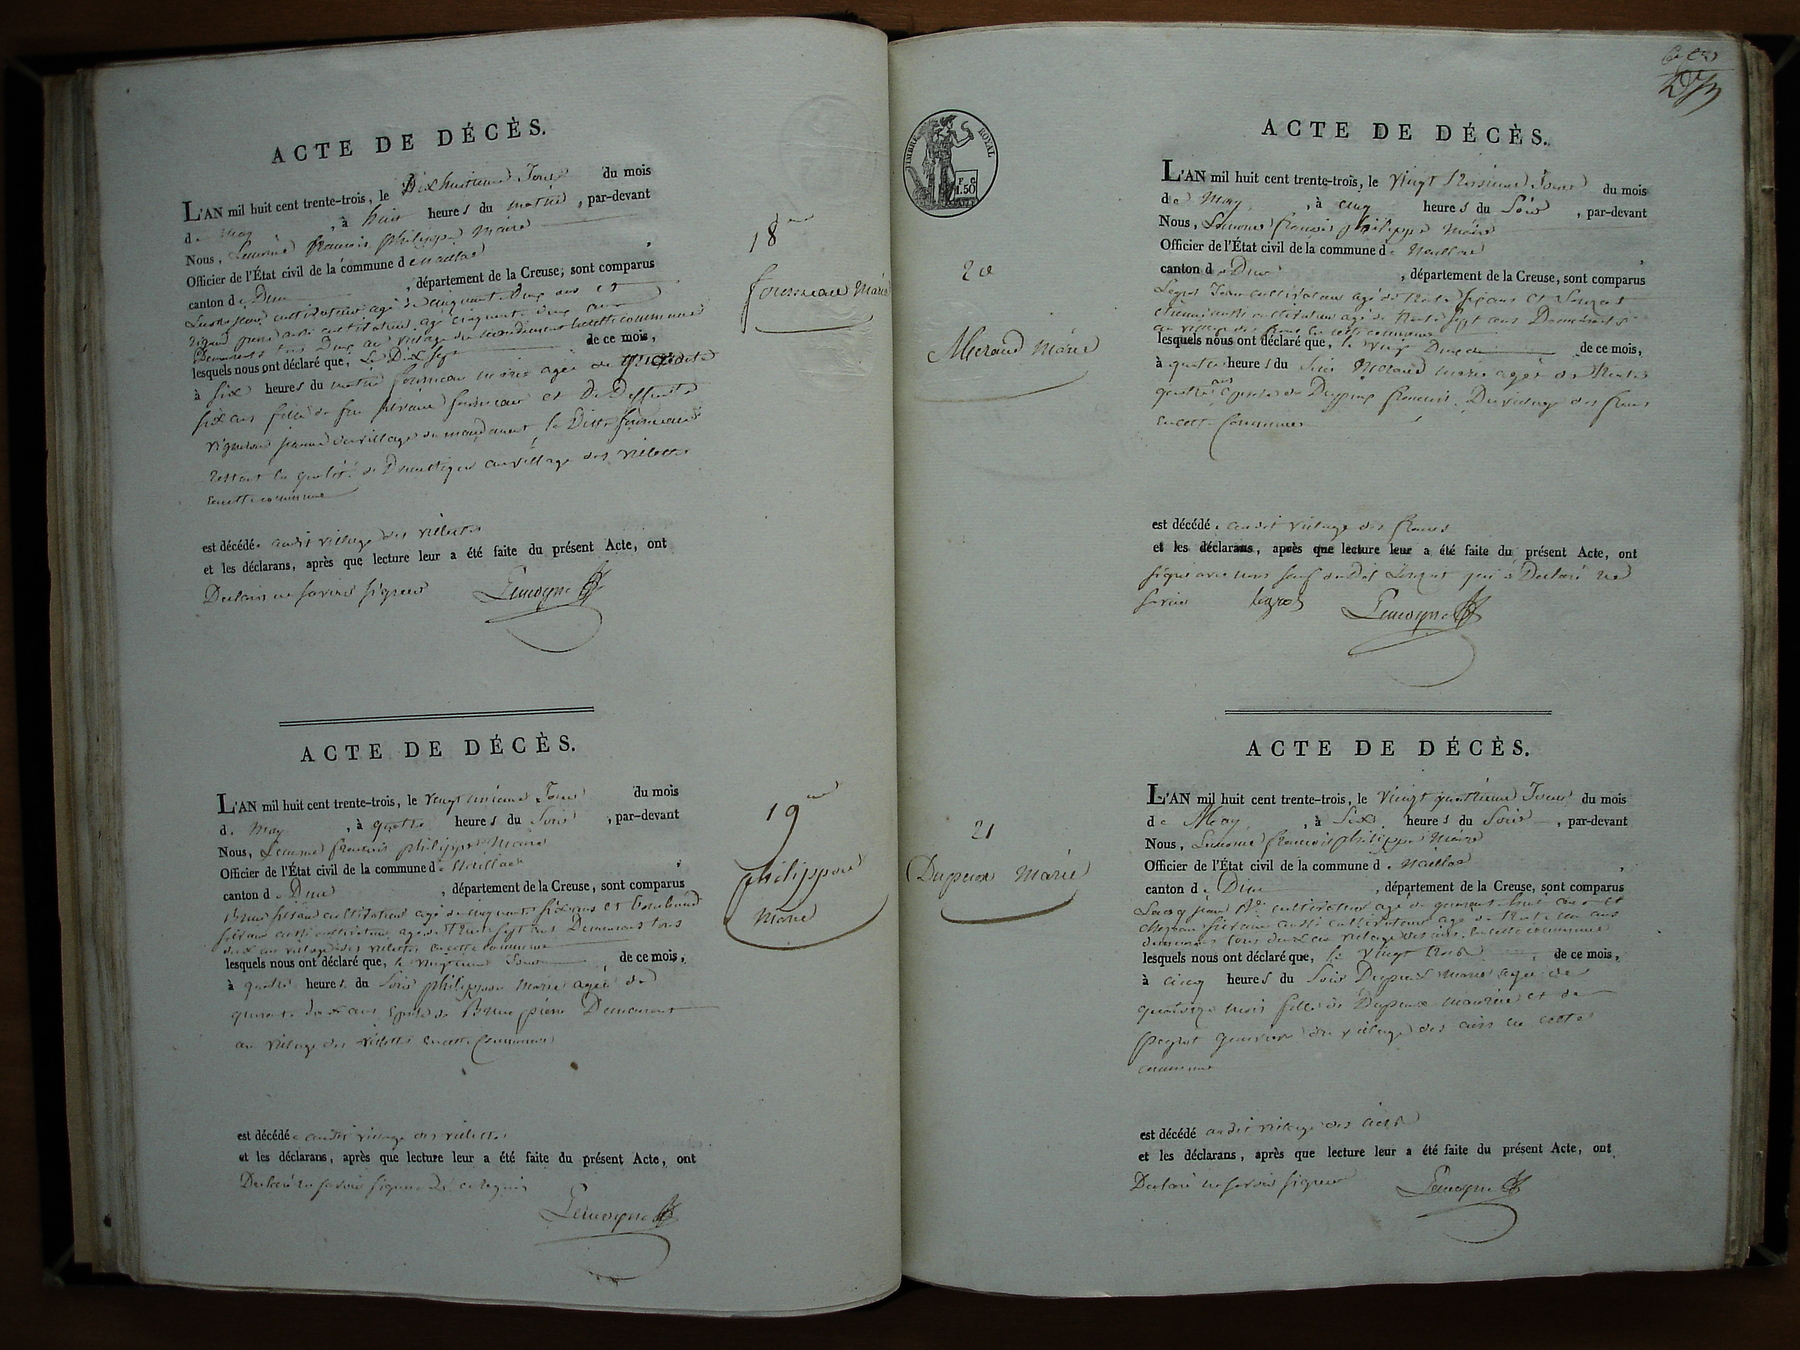 ACTE DE DÉCÈS.
L'AN mil huit cent trente-trois, le Dixhuitieme Jour du mois
de May, à huit heures du matin, par-devant
Nous, Lemoine françois philippe Maire
Officier de l'État civil de la commune de Naillat,
canton de Dun, département de la Creuse, sont comparus
jean cultivateur agé de cinquante Deux ans et
aussi cultivateur agé cinquante Deux ans
Demeurants tous Deux au village du mandement en cette commune
lesquels nous ont déclaré que, Le Dix Sept de ce mois,
à Six heures du matin fourneau marie agée de quarante
six ans fille de feu silvain fourneau et De Deffunte
vigneron jeanne du village du mandement la Ditte fourneau
restant en qualité de Domestique au village des villettes
en cette commune
est décédée audit village des villettes
et les déclarans, après que lecture leur a été faite du présent Acte, ont
Declaré ne savoir signer Lemoyne
18me
fourneau Marie
ACTE DE DÉCÈS.
L'AN mil huit cent trente-trois, le vingt unieme Jour du mois
de May, à quatre heures du Soir, par-devant
Nous, Lemoine françois philippe Maire
Officier de l'État civil de la commune de Naillat,
canton de Dun, département de la Creuse, sont comparus
Brun silvain cultivateur agé de cinquante six ans et
silvain aussi cultivateur agé de trente sept ans Demeurants tous
deux au village des villettes en cette commune
lesquels nous ont déclaré que, le vingtieme Jour de ce mois,
à quatre heures du Soir philippon Marie agée de
quarante deux ans Epouse de Brun pierre Demeurant
au village des villettes en cette Commune
est décédée audit village des villettes
et les déclarans, après que lecture leur a été faite du présent Acte, ont
Declaré ne savoir signer De ce requis
Lemoyne
19me
philippon
Marie
TIMBRE ROYAL
1.50
ACTE DE DÉCÈS.
L'AN mil huit cent trente-trois, le vingt troisieme Jour du mois
de May, à cinq heures du Soir, par-devant
Nous, Lemoine françois philippe Maire
Officier de l'État civil de la commune de Naillat,
canton de Dun, département de la Creuse, sont comparus
Legros Jean cultivateur agé de trente six ans et
etienne aussi cultivateur agé de trente sept ans Demeurants
au village des francs en cette commune
lesquels nous ont déclaré que, le vingt Deux de ce mois,
à quatre heures du Soir Meraud Marie agée de trente
quatre ans Epouse de Dupeux françois Du village des francs
en cette Commune
est décédée audit village des francs
et les déclarans, après que lecture leur a été faite du présent Acte, ont
signé avec nous sauf ledit qui a Declaré ne
savoir legros Lemoyne
20
Meraud Marie
ACTE DE DÉCÈS.
L'AN mil huit cent trente-trois, le Vingt quatrieme Jour du mois
de May, à Six heures du Soir, par-devant
Nous, Lemoine françois philippe Maire
Officier de l'État civil de la commune de Naillat,
canton de Dun, département de la Creuse, sont comparus
jean cultivateur agé de quarante huit ans et
silvain aussi cultivateur agé de trente un ans
demeurants tous deux au village des en cette commune
lesquels nous ont déclaré que, le vingt trois de ce mois,
à cinq heures du Soir Dupeux Marie agée de
quatorze mois fille de Dupeux maurice et de
peyrot du village des en cette
commune
est décédé audit village des
et les déclarans, après que lecture leur a été faite du présent Acte, ont
Declaré ne savoir signer Lemoyne
21
Dupeux Marie